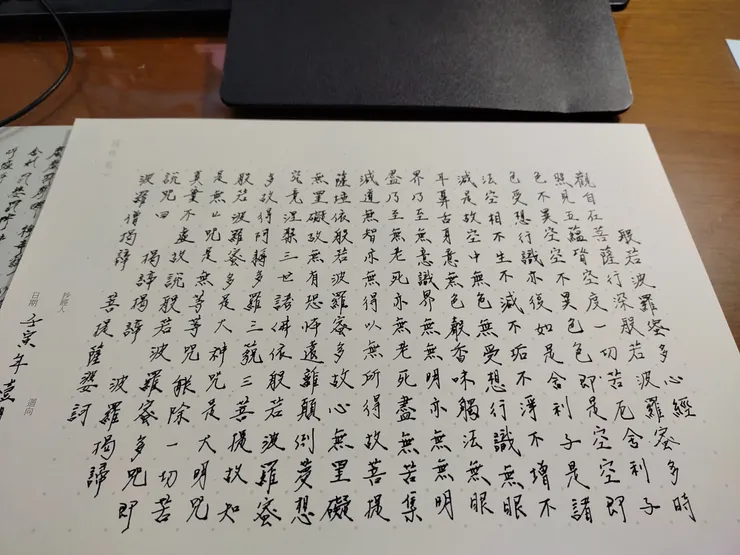 般若波羅蜜多心經
觀自在菩薩行深般若波羅蜜多時
照見五蘊皆空度一切苦厄舍利子
色不異空空不異色色即是空空即
色受想行識亦復如是舍利子是諸
法空相不生不滅不垢不淨不增不
減是故空中無色無受想行識無眼
耳鼻舌身意無色聲香味觸法無眼
界乃至無意識界無無明亦無無明
盡乃至無老死亦無老死盡無苦集
滅道無智亦無得以無所得故菩提
薩埵依般若波羅蜜多故心無罣礙
無罣礙故無有恐怖遠離顛倒夢想
究竟涅槃三世諸佛依般若波羅蜜
多故得阿耨多羅三藐三菩提故知
般若波羅蜜多是大神咒是大明咒
是無上咒是無等等咒能除一切苦
真實不虛故說般若波羅蜜多咒即
說咒曰 揭諦揭諦 波羅揭諦
波羅僧揭諦 菩提薩婆訶
抄經人 迴向
日期 壬寅年壹